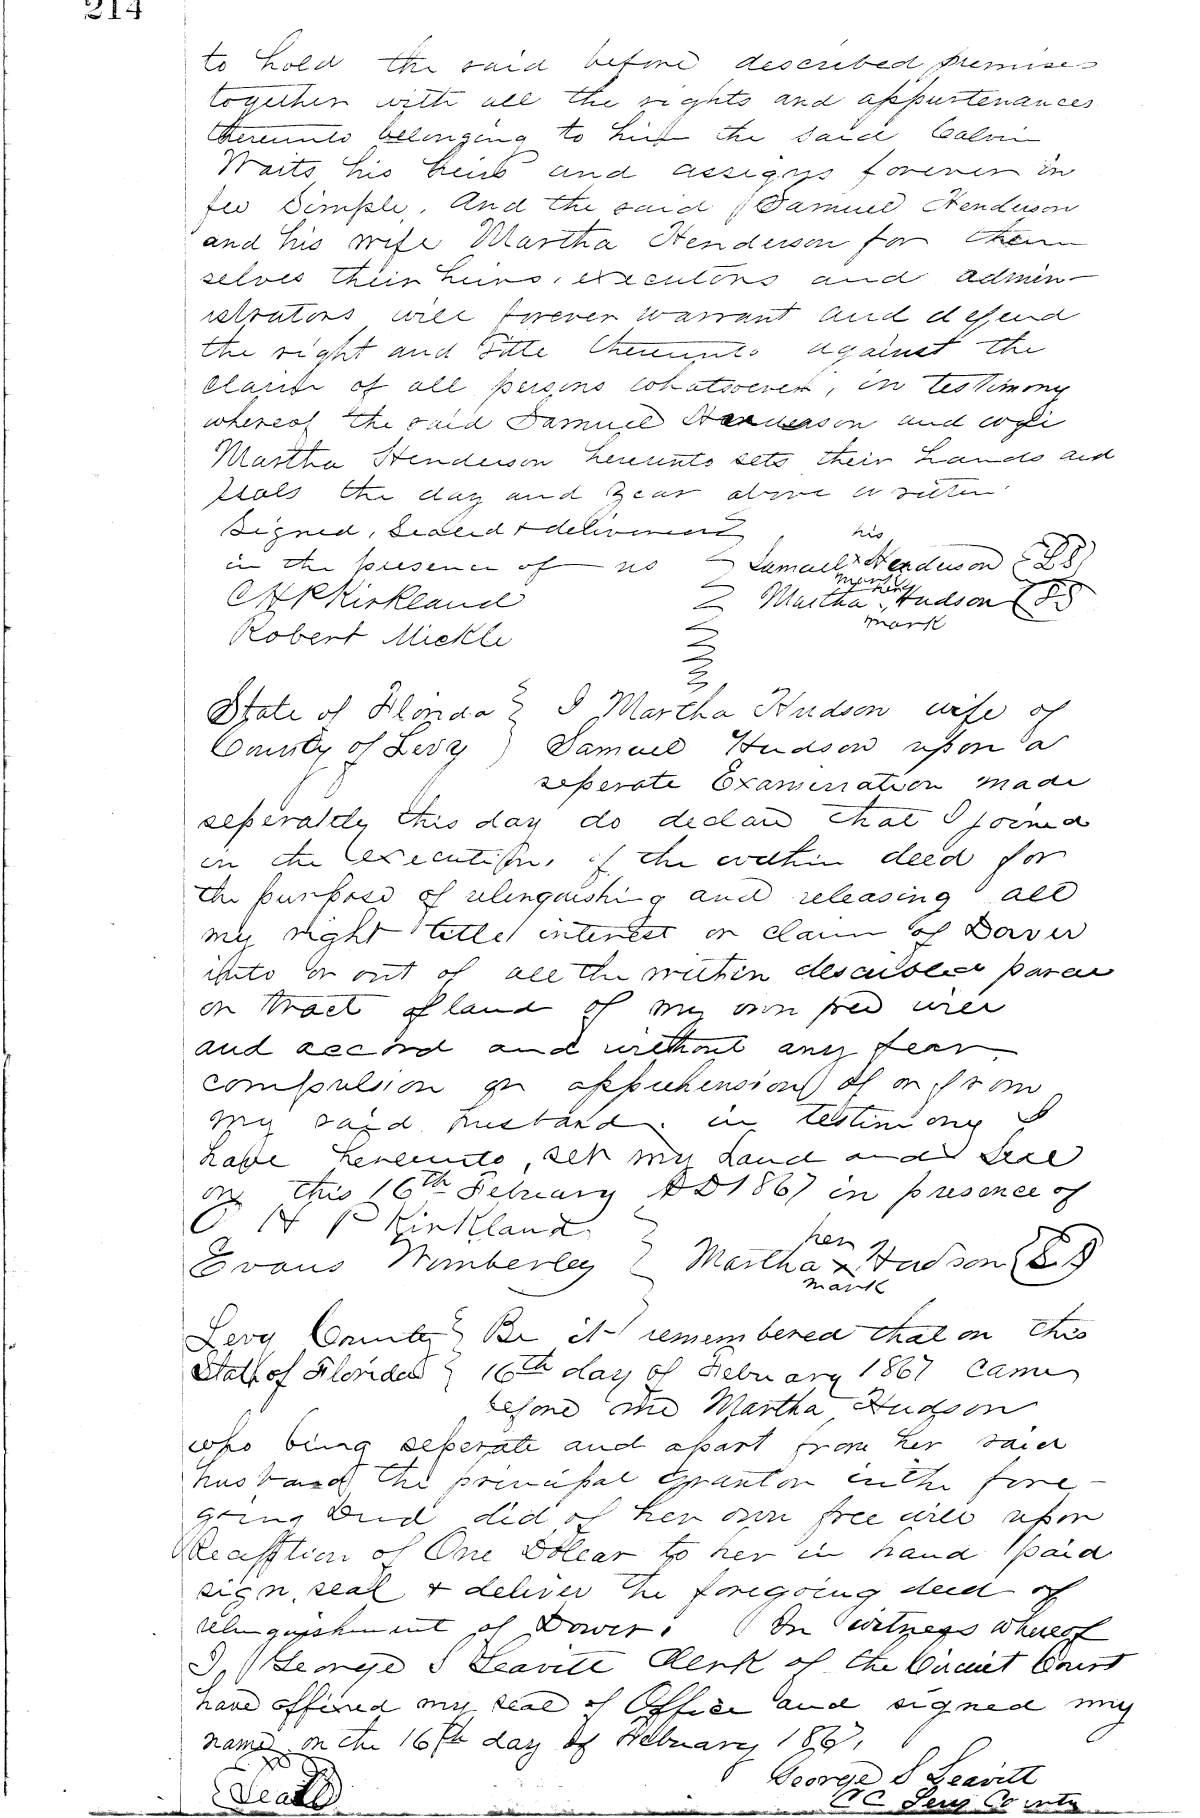 214
to hold the said before described premises
together with all the rights and appurtenances
thereunto belonging to him the said Calvin
Waits his heirs and assigns forever in
fee Simple. And the said Samuel Henderson
and his wife Martha Henderson for them
selves their heirs, executors and admin-
istrators will forever warrant and defend
the right and title thereunto against the
claim of all persons whatsoever, in testimony
whereof the said Samuel Henderson and wife
Martha Henderson hereunto sets their hands and
seals the day and year above written
Signed, Sealed & delivered his
in the presence of us Samuel x Henderson LS
mark
C H P Kirkland Martha x Hudson LS
her
mark
Robert Mickle
State of Florida I Martha Hudson wife of
County of Levy Samuel Hudson upon a
seperate Examination made
seperately this day do declare that I joined
in the execution of the within deed for
the purpose of relinquishing and releasing all
my right title interest or claim of Dower
into or out of all the within described parcel
or tract of land of my own free will
and accord and without any fear
compulsion or apprehension of or from
my said husband. in testimony I
have hereunto, set my hand and seal
on this 16th February AD 1867 in presence of
C H P Kirkland
her
Evans Wimberley Martha x Hudson LS
mark
Levy County Be it remembered that on this
State of Florida 16th day of February 1867 came
before me Martha Hudson
who being seperate and apart from her said
husband the principal grantor in the fore-
going Deed did of her own free will upon
Receiption of One Dollar to her in hand paid
sign, seal & deliver the foregoing deed of
relinquishment of Dower. In witness whereof
I, George S Leavitt Clerk of the Circuit Court
have affixed my seal of Office and signed my
name on the 16th day of February 1867.
George S Leavitt
Seal CC Levy County